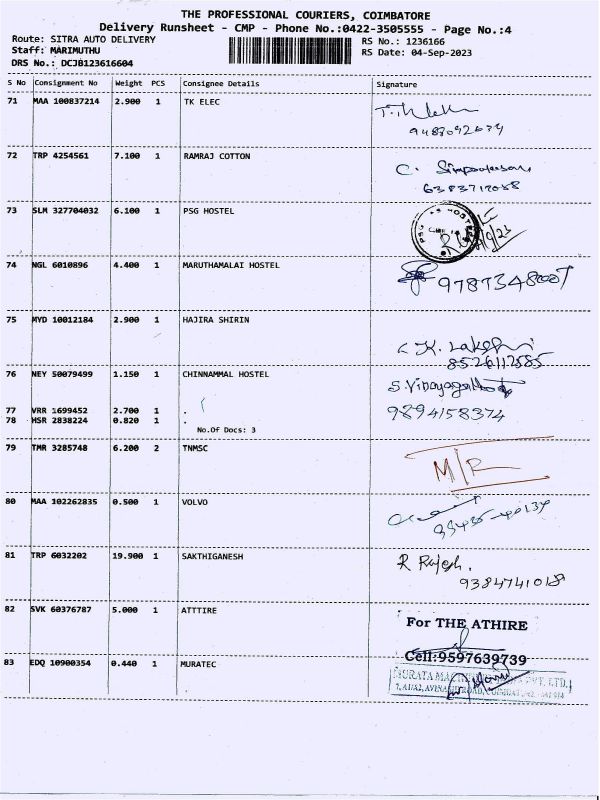 THE PROFESSIONAL COURIERS, COIMBATORE
Delivery Runsheet - CMP - Phone No.:0422-3505555 - Page No.:4
Route: SITRA AUTO DELIVERY
RS No.: 1236166
Staff: MARIMUTHU
RS Date: 04-Sep-2023
DRS No.: DCJB123616604
S No Consignment No Weight PCS Consignee Details Signature
71 MAA 100837214 2.900 1 TK ELEC
72 TRP 4254561 7.100 1 RAMRAJ COTTON
C.
6383712058
73 SLM 327704032 6.100 1 PSG HOSTEL
74 NGL 6010896 4.400 1 MARUTHAMALAI HOSTEL
75 MYD 10012184 2.900 1 HAJIRA SHIRIN
K. Lakshmi
8526112585
76 NEY 50079499 1.150 1 CHINNAMMAL HOSTEL
77 VRR 1699452 2.700 1 .
9894158374
78 HSR 2838224 0.820 1 .
No.Of Docs: 3
79 TMR 3285748 6.200 2 TNMSC
M/R
80 MAA 102262835 0.500 1 VOLVO
81 TRP 6032202 19.900 1 SAKTHIGANESH
R Rajesh.
9384741018
82 SVK 60376787 5.000 1 ATTTIRE
For THE ATHIRE
Cell:9597639739
83 EDQ 10900354 0.440 1 MURATEC